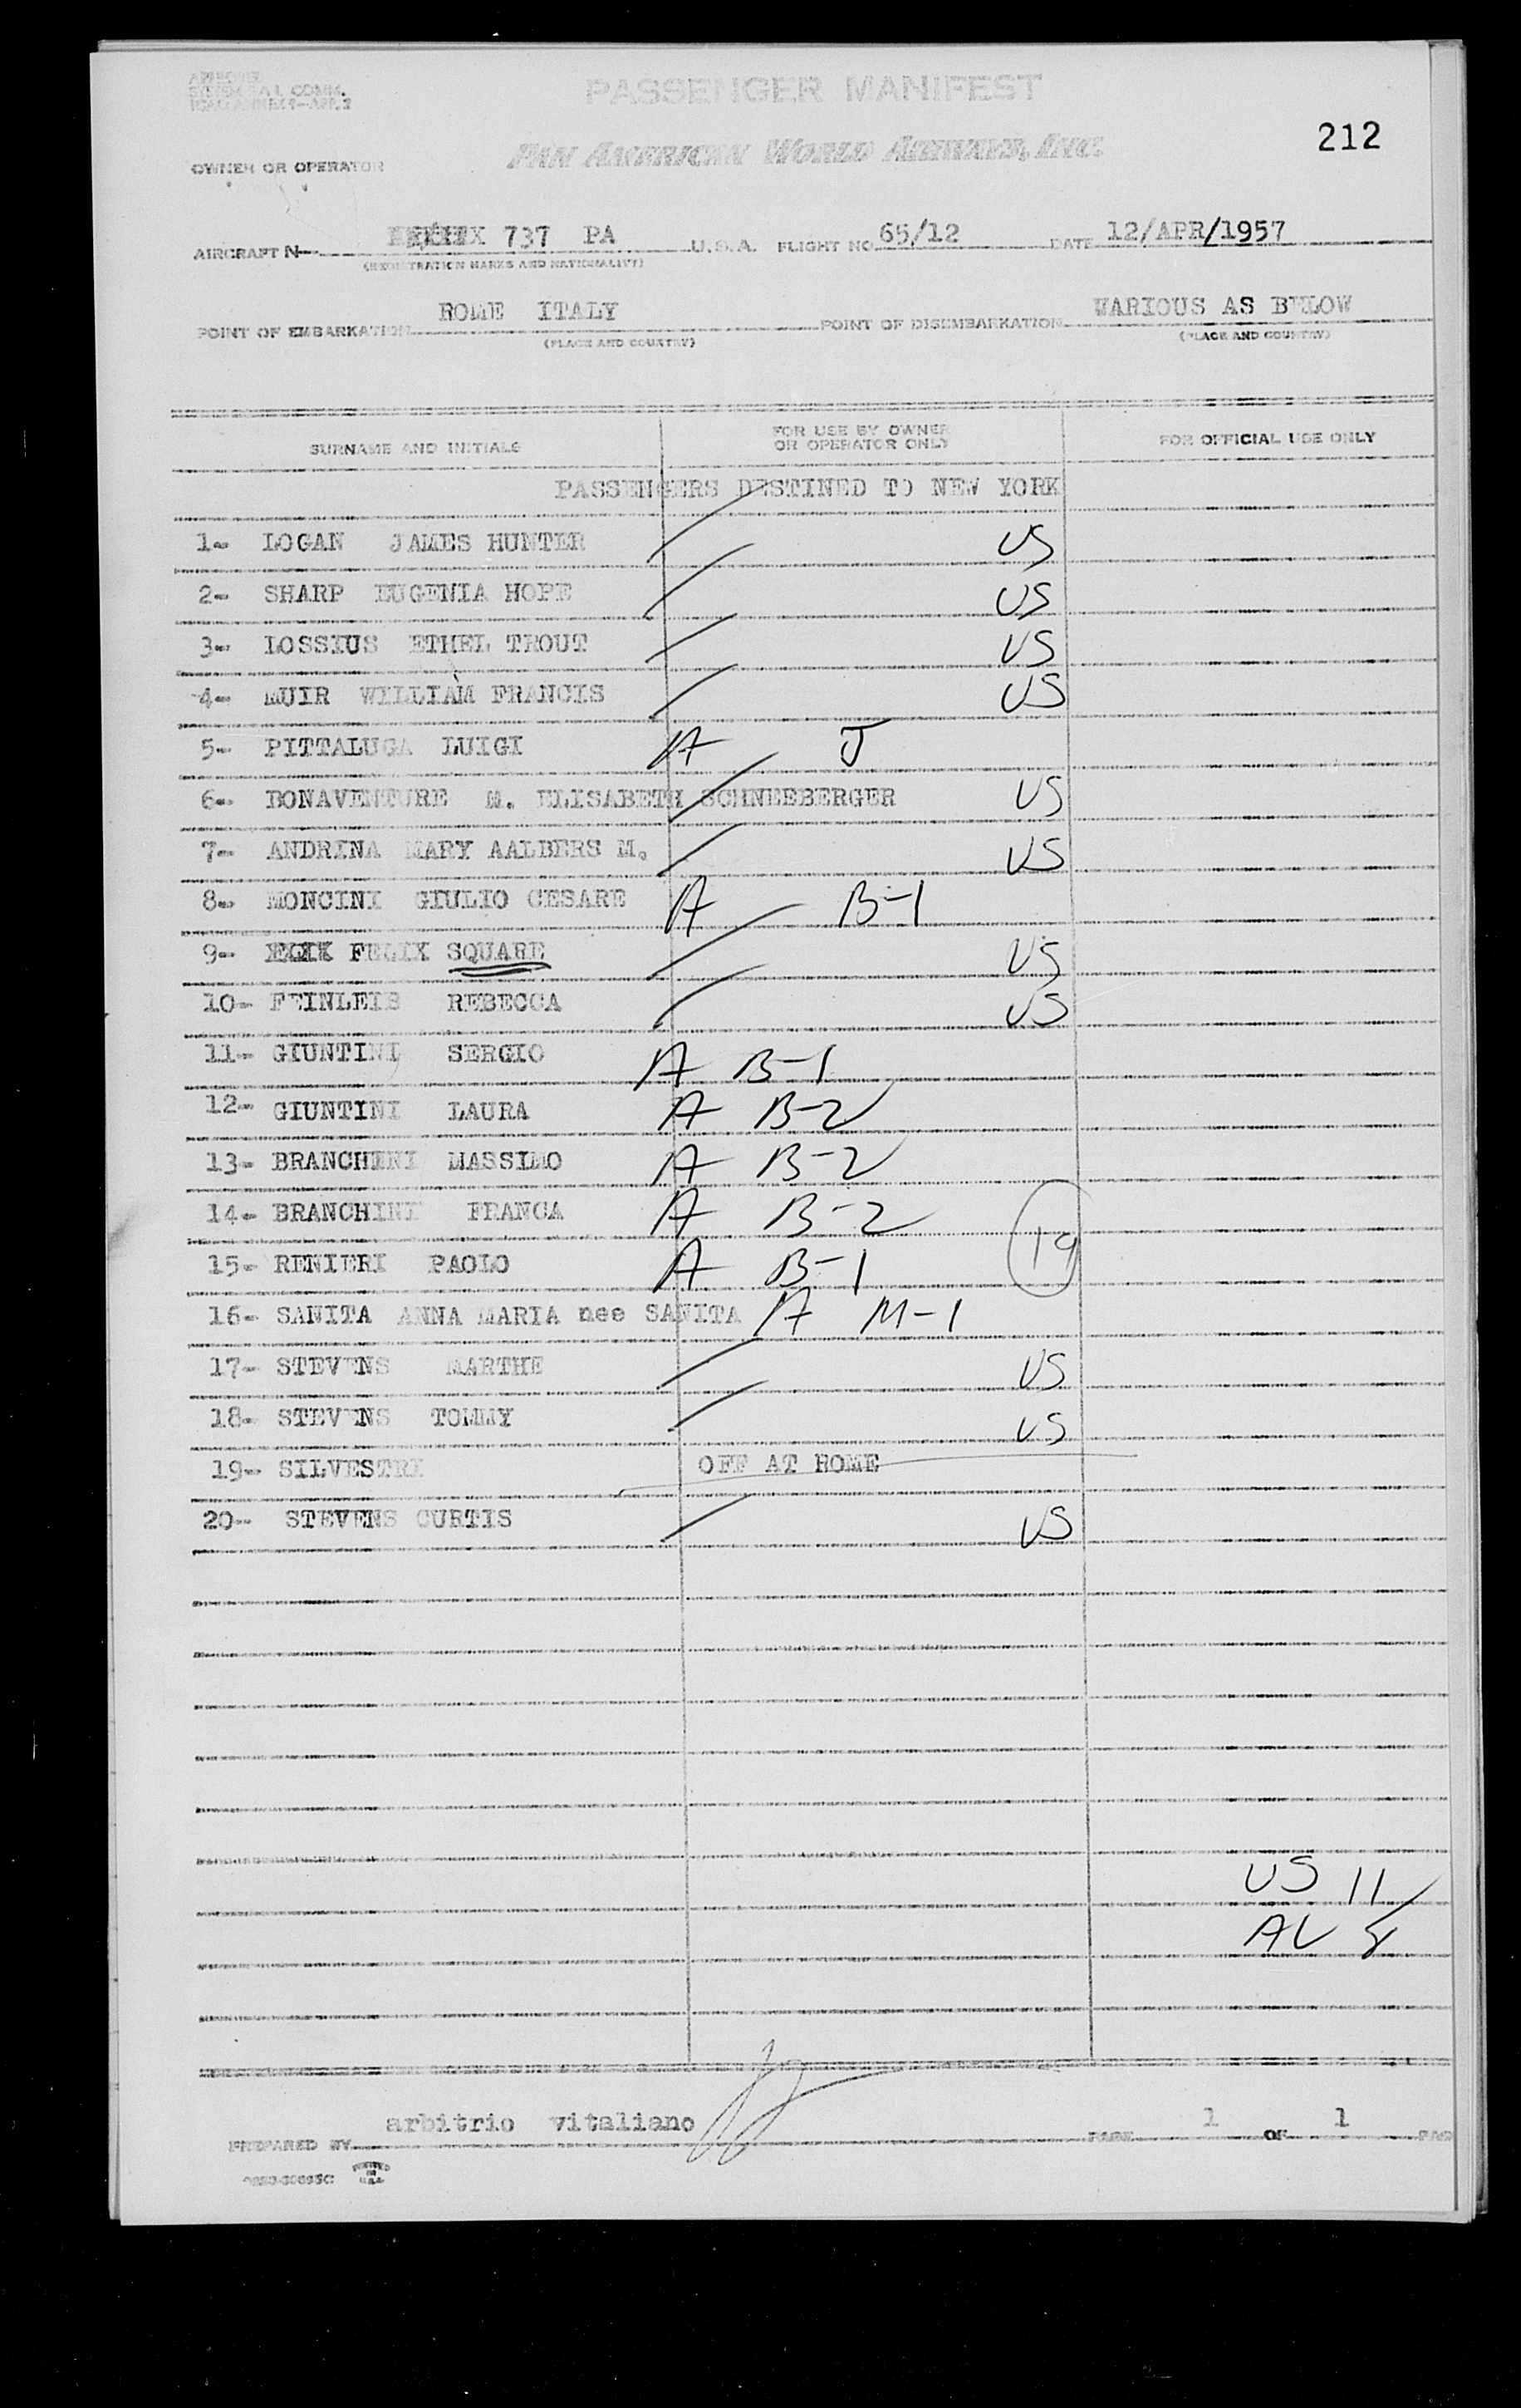 PASSENGER MANIFEST
212
PAN AMERICAN WORLD AIRWAYS, INC.
OWNER OR OPERATOR
AIRCRAFT N 737 PA U.S.A. FLIGHT NO 65/12 DATE 12/APR/1957
(REGISTRATION MARKS AND NATIONALITY)
POINT OF EMBARKATION ROME ITALY POINT OF DISEMBARKATION WARIOUS AS BELOW
(PLACE AND COUNTRY) (PLACE AND COUNTRY)
SURNAME AND INITIALS FOR USE BY OWNER OR OPERATOR ONLY FOR OFFICIAL USE ONLY
PASSENGERS DESTINED TO NEW YORK
1- LOGAN JAMES HUNTER US
2- SHARP EUGENIA HOPE US
3- LOSSIUS ETHEL TROUT US
4- MUIR WILLIAM FRANCIS US
5- PITTALUGA LUIGI A J
6- BONAVENTURE M. ELISABETH SCHNEEBERGER US
7- ANDRINA MARY AALBERS M. US
8- MONCINI GIULIO CESARE A B-1
9- FELIX SQUARE US
10- FEINLEIB REBECCA US
11- GIUNTINI SERGIO A B-1
12- GIUNTINI LAURA A B-2
13- BRANCHINI MASSIMO A B-2
14- BRANCHINI FRANCA A B-2
15- RENIERI PAOLO A B-1 19
16- SANITA ANNA MARIA nee SANITA A M-1
17- STEVENS MARTHE US
18- STEVENS TOMMY US
19- SILVESTRI OFF AT ROME
20- STEVENS CURTIS US
US 11
AL 8
PREPARED BY arbitrio vitaliano PAGE 1 OF 1
PRINTED IN U.S.A.